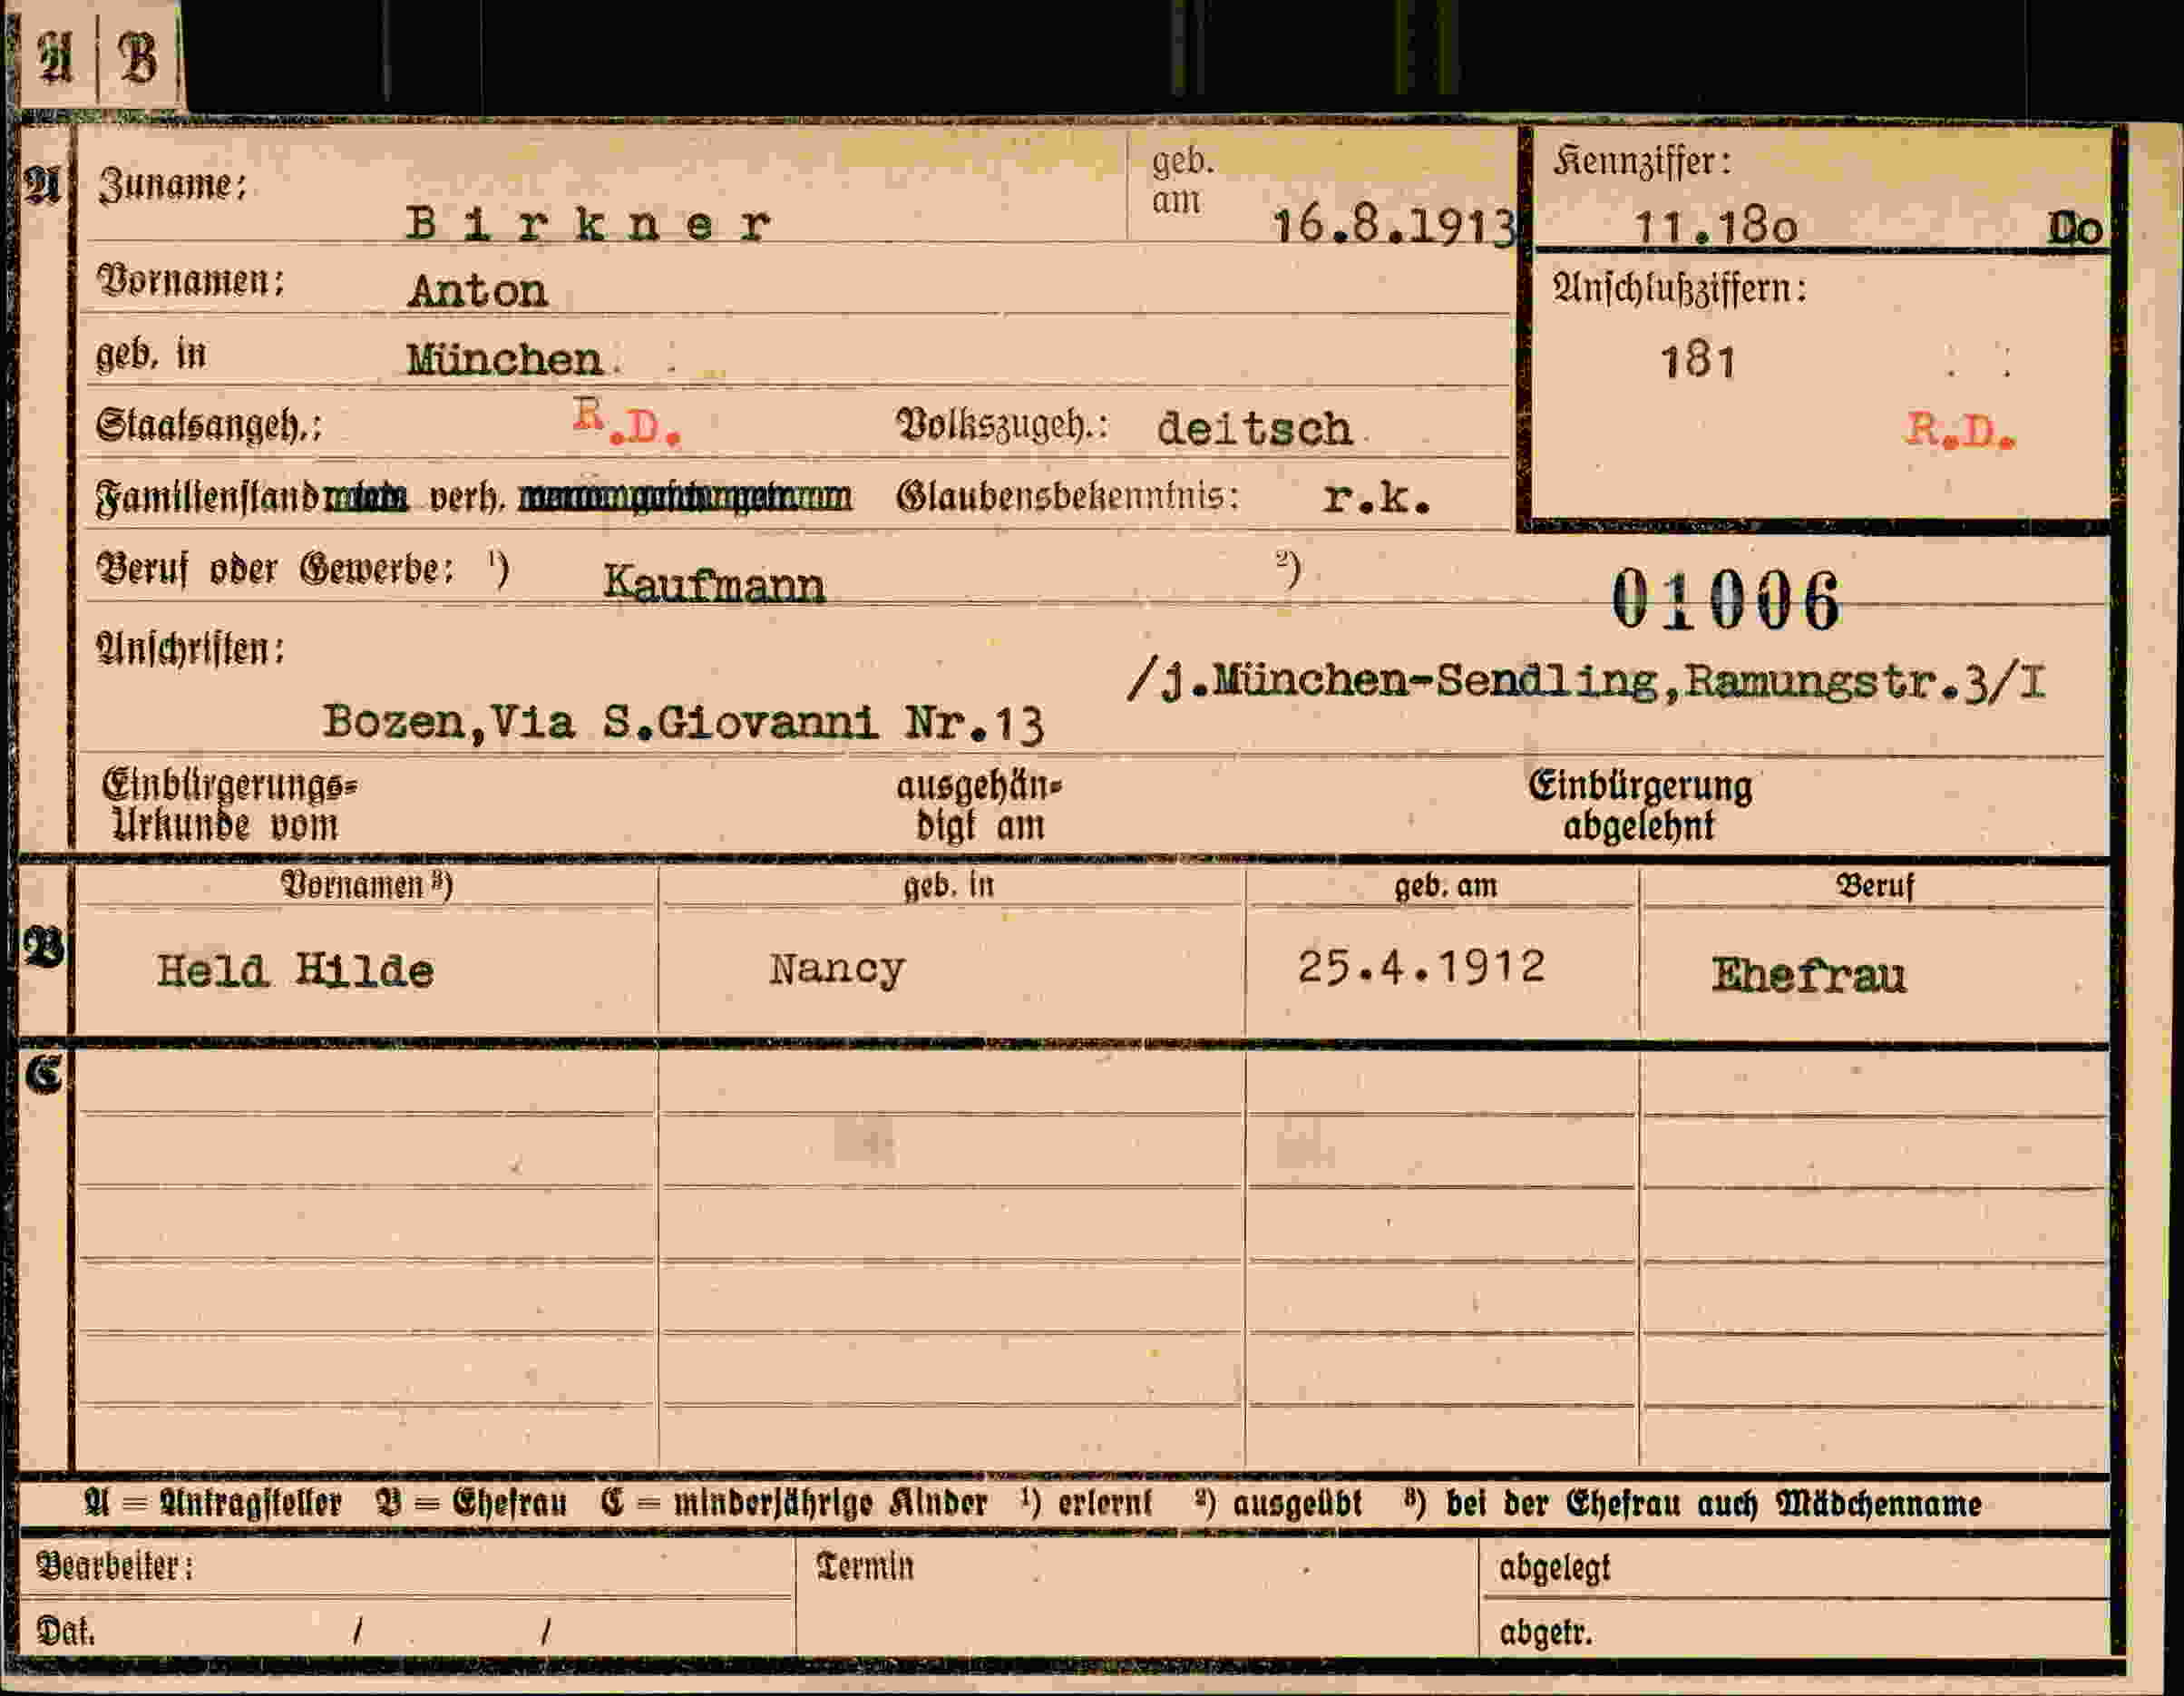 A | B
A Zuname: Birkner geb. am 16.8.1913 Kennziffer: 11.18o Do
Vornamen: Anton Anschlußziffern:
geb. in München 181
Staatsangeh.: R.D. Volkszugeh.: deitsch R.D.
Familienstand verh. Glaubensbekenntnis: r.k.
Beruf oder Gewerbe: ¹) Kaufmann ²) 01006
Anschriften: /j.München-Sendling,Ramungstr.3/I
Bozen,Via S.Giovanni Nr.13
Einbürgerungs= ausgehän= Einbürgerung
Urkunde vom digt am abgelehnt
Vornamen ³) geb. in geb. am Beruf
B Held Hilde Nancy 25.4.1912 Ehefrau
C
A = Antragsteller B = Ehefrau C = minderjährige Kinder ¹) erlernt ²) ausgeübt ³) bei der Ehefrau auch Mädchenname
Bearbeiter: Termin abgelegt
Dat. / / abgetr.